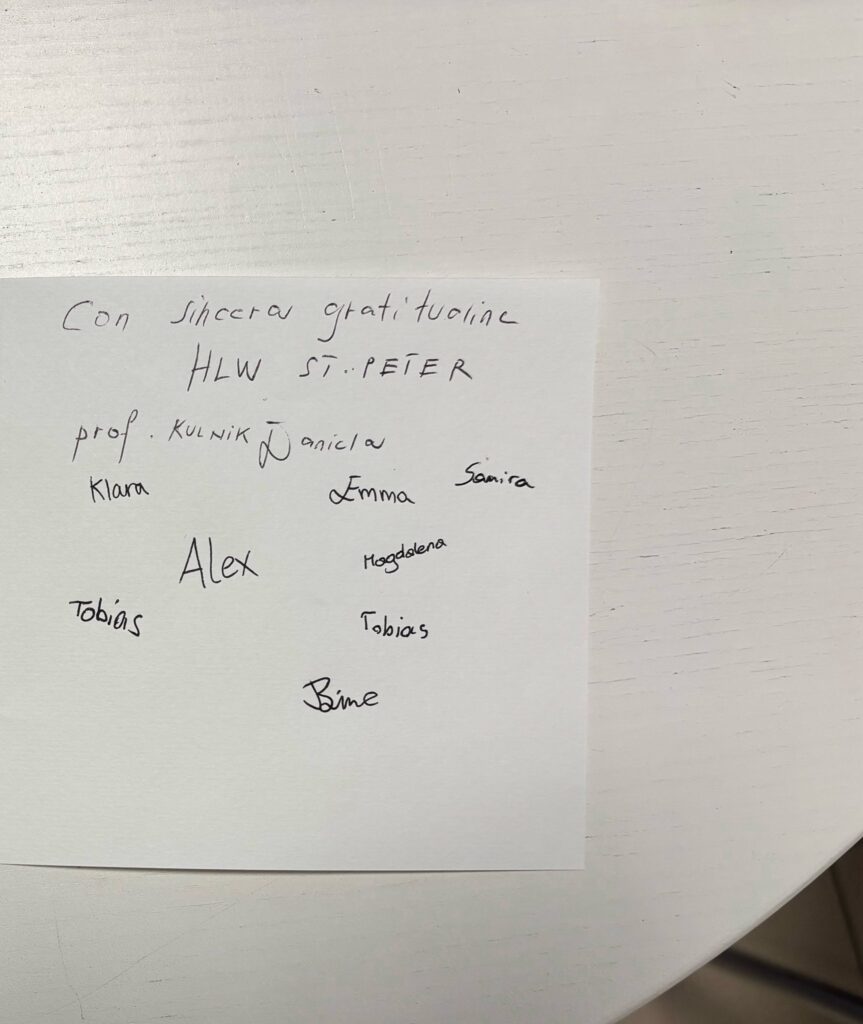 Con sincera gratitudine
HLW ST. PETER
prof. KULNIK Daniela
Klara Emma Samira
Alex Magdalena
Tobias Tobias